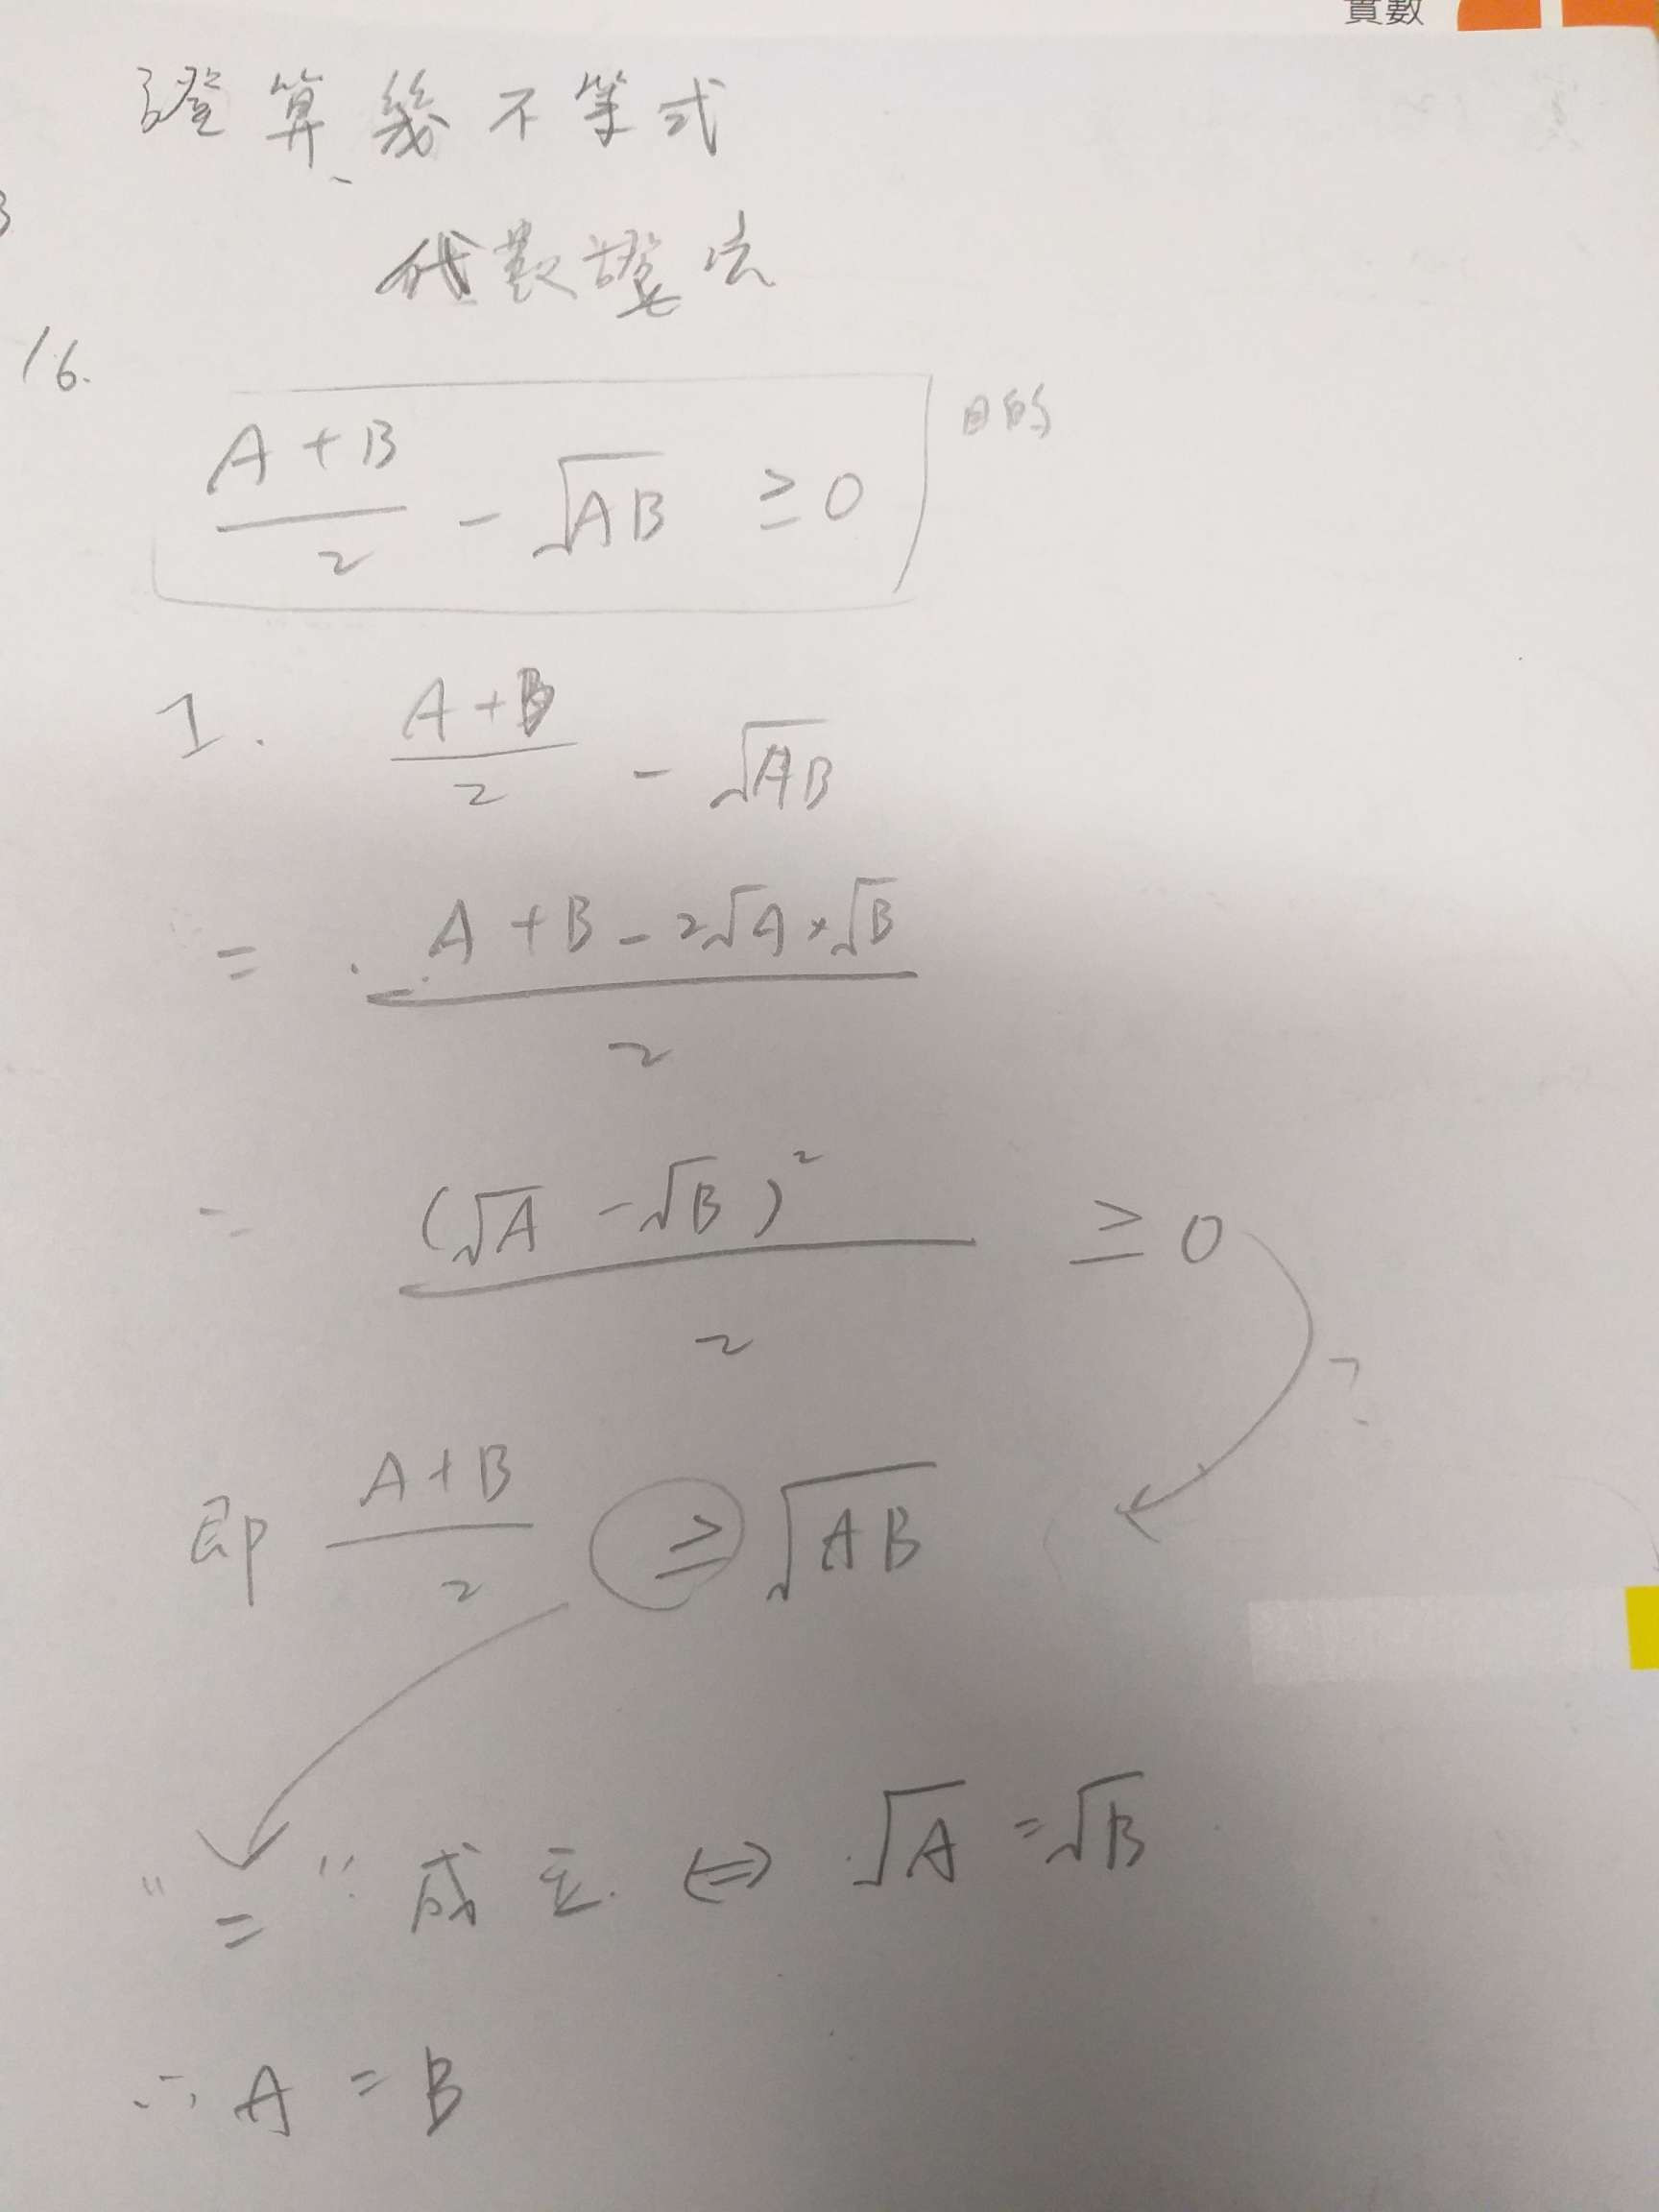 實數
證算幾不等式
代數證法
16.
(A+B)/2 - √AB ≥ 0 目的
1. (A+B)/2 - √AB
= (A+B-2√A×√B)/2
= (√A-√B)²/2 ≥ 0
?
即 (A+B)/2 ≥ √AB
"=" 成立 ⇔ √A = √B
∴ A = B